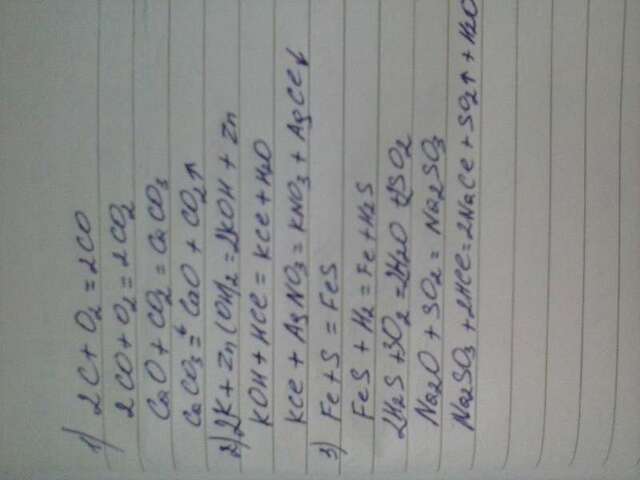 1) 2C + O2 = 2CO
2CO + O2 = 2CO2
CaO + CO2 = CaCO3
CaCO3 =t CaO + CO2↑
2) 2K + Zn(OH)2 = 2KOH + Zn
KOH + HCl = KCl + H2O
KCl + AgNO3 = KNO3 + AgCl↓
3) Fe + S = FeS
FeS + H2 = Fe + H2S
2H2S + SO2 = 2H2O + SO2
Na2O + SO2 = Na2SO3
Na2SO3 + 2HCl = 2NaCl + SO2↑ + H2O